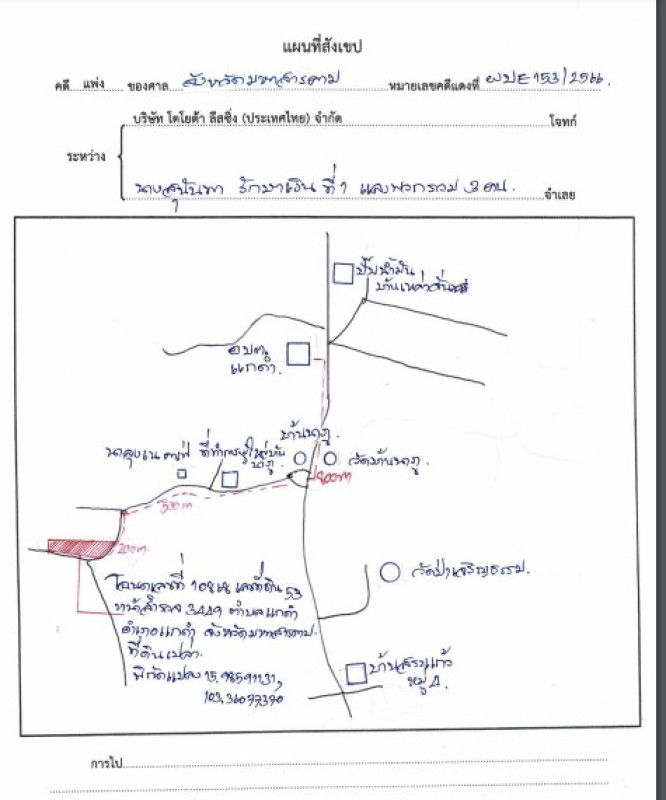 แผนที่สังเขป
คดี แพ่ง ของศาล จังหวัดมหาสารคาม หมายเลขคดีแดงที่ ผบE153/2566
บริษัท โตโยต้า ลีสซิ่ง (ประเทศไทย) จำกัด โจทก์
ระหว่าง
นางสุนันทา รักษาเงิน ที่1 และพวกรวม 3 คน. จำเลย
ปั๊มน้ำมัน
อบต.
แกดำ.
บ้านนาภู.
ที่ทำการผู้ใหญ่บ้าน
นาภู.
วัดบ้านนาภู.
800m
500m
200m.
วัดป่าเจริญธรรม.
โฉนดเลขที่ เลขที่ดิน 53
หน้าสำรวจ 3449 ตำบลแกดำ
อำเภอแกดำ จังหวัดมหาสารคาม.
ที่ดินเปล่า.
พิกัดแปลง
บ้านสระแก้ว
หมู่ 4.
การไป